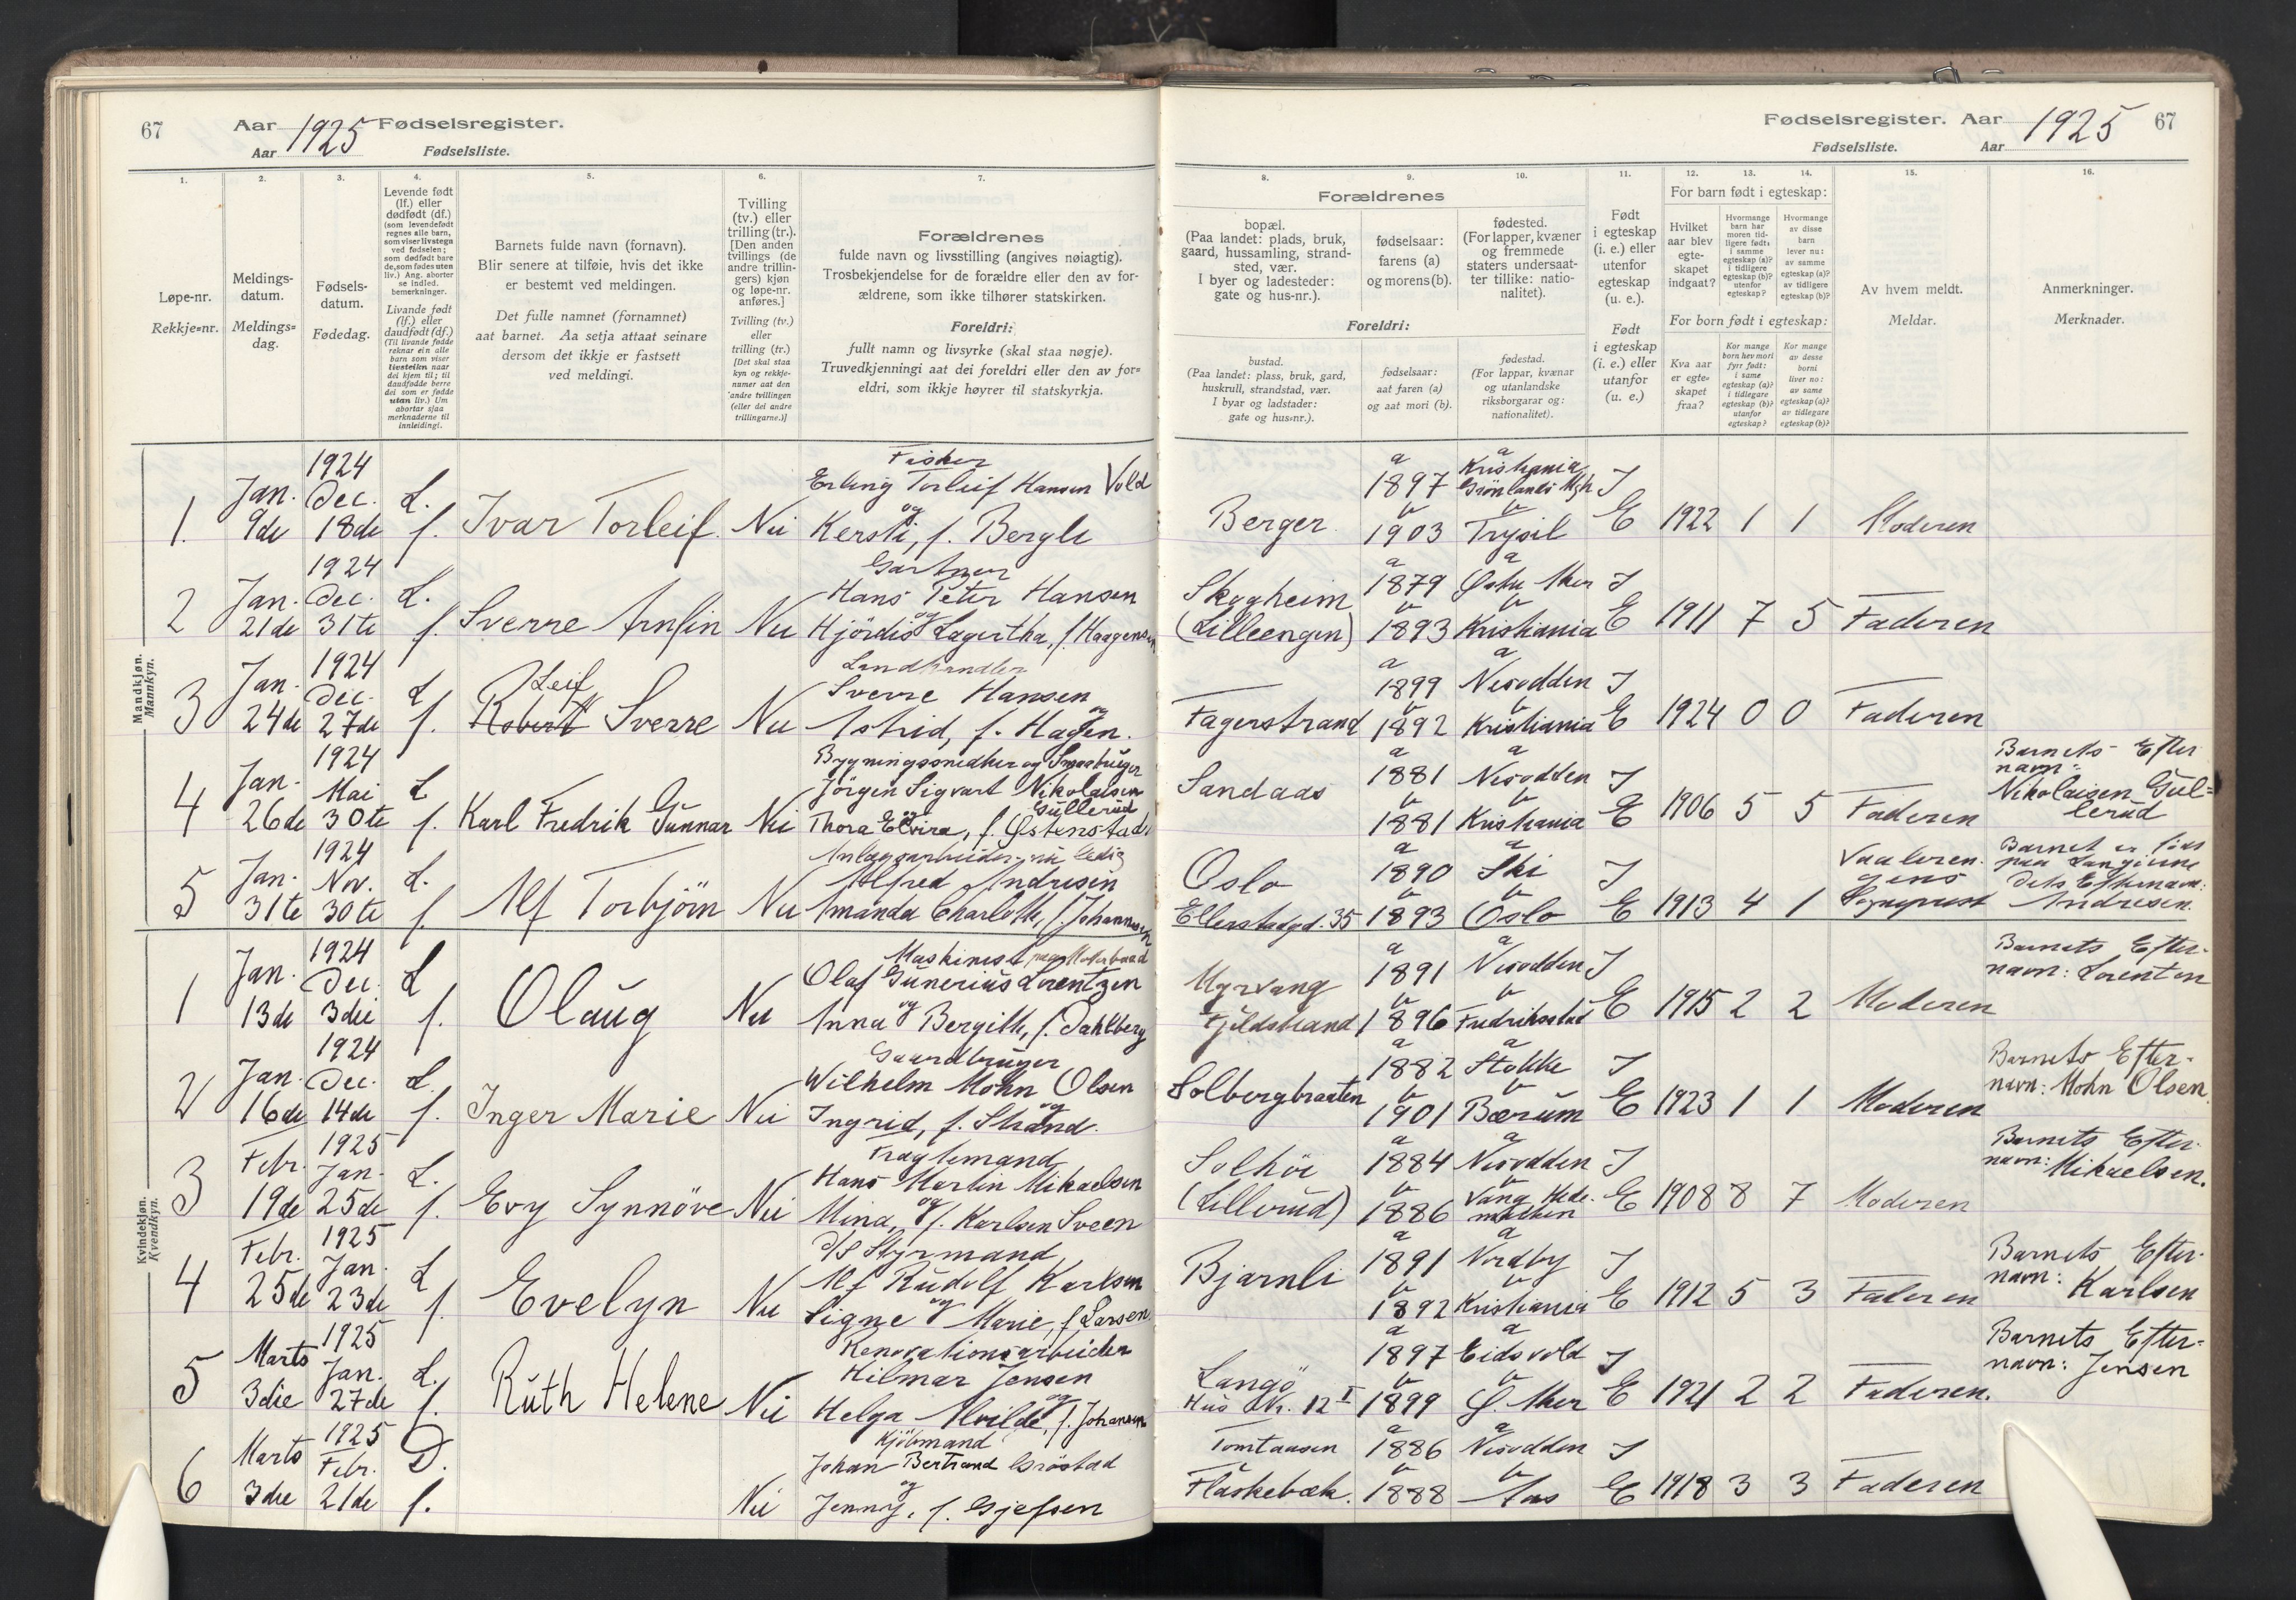 67 Aar 1925 Fødselsregister.
Aar Fødselsliste.
Fødselsregister. Aar 1925 67
Fødselsliste. Aar
1.
Løpe-nr.
Rekkje=nr.
2.
Meldings-
datum.
Meldings=
dag.
3.
Fødsels-
datum.
Fødedag.
4.
Levende født
(lf.) eller
dødfødt (df.)
(som levendefødt
regnes alle barn,
som viser livstegn
ved fødselen;
som dødfødt bare
de, som fødes uten
liv.) Ang. aborter
se indled.
bemerkninger.
Livande født
(lf.) eller
daudfødt (df.)
(Til livande fødde
reknar ein alle
barn som viser
livsteikn naar
dei kjem til; til
daudfødde berre
dei som er fødde
utan liv.) Um
abortar sjaa
merknaderne til
innleidingi.
5.
Barnets fulde navn (fornavn).
Blir senere at tilføie, hvis det ikke
er bestemt ved meldingen.
Det fulle namnet (fornamnet)
aat barnet. Aa setja attaat seinare
dersom det ikkje er fastsett
ved meldingi.
6.
Tvilling
(tv.) eller
trilling (tr.).
[Den anden
tvillings (de
andre trillin-
gers) kjøn
og løpe-nr.
anføres.]
Tvilling (tv.)
eller
trilling (tr.)
[Det skal staa
kyn og rekkje-
numer aat den
andre tvillingen
(eller dei andre
trillingarne.)]
7.
Forældrenes
fulde navn og livsstilling (angives nøiagtig).
Trosbekjendelse for de forældre eller den av for-
ældrene, som ikke tilhører statskirken.
Foreldri:
fullt namn og livsyrke (skal staa nøgje).
Truvedkjenningi aat dei foreldri eller den av for=
eldri, som ikkje høyrer til statskyrkja.
Forældrenes
8.
bopæl.
(Paa landet: plads, bruk,
gaard, hussamling, strand-
sted, vær.
I byer og ladesteder:
gate og hus-nr.).
9.
fødselsaar:
farens (a)
og morens (b).
10.
fødested.
(For lapper, kvæner
og fremmede
staters undersaat-
ter tillike: natio-
nalitet).
Foreldri:
bustad.
(Paa landet: plass, bruk, gard,
huskrull, strandstad, vær.
I byar og ladstader:
gate og hus=nr.).
fødselsaar:
aat faren (a)
og aat mori (b).
fødestad.
(For lappar, kvænar
og utanlandske
riksborgarar og:
nationalitet).
11.
Født
i egteskap
(i. e.) eller
utenfor
egteskap
(u. e.).
Født
i egteskap
(i. e.) eller
utanfor
(u. e.)
For barn født i egteskap:
12.
Hvilket
aar blev
egte-
skapet
indgaat?
13.
Hvormange
barn har
moren tid-
ligere født:
i samme
egteskap (a)?
i tidligere
egteskap (b)?
utenfor
egteskap?
14.
Hvormange
av disse
barn
lever nu:
av samme
egteskap (a)?
av tidligere
egteskap (b)?
For born født i egteskap:
Kva aar
er egte=
skapet
fraa?
Kor mange
born hev mori
fyrr født:
i same
egteskap (a)?
i tidlegare
egteskap (b)?
utanfor
egteskap?
Kor mange
av desse
borni
liver no:
av same
egteskap (a)?
av tidlegare
egteskap (b)?
15.
Av hvem meldt.
Meldar.
16.
Anmerkninger.
Merknader.
Mandkjøn.
Mannkyn.
1924 Fisker
Jan. Dec. L. Erling Torleif Hansen Vold
1. 9de 18de f. Ivar Torleif. Nei og Kersti, f. Bergli
a 1897 a Kristiania Grønlands Mgh I
Berger b 1903 b Trysil E 1922 1 1 Moderen
1924 Gartner
Jan. Dec. L. Hans Peter Hansen
2 21de 31te f. Sverre Arnfin Nei og Hjördis Lagertha, f. Haagensen
Skogheim a 1879 a Østre Aker I
(Lilleengen) b 1893 b Kristiania E 1911 7 5 Faderen
1924 Landhandler
Jan. Dec. L Leif Sverre Hansen
3 24de 27de f. Robert Sverre Nei og Astrid, f. Hagen.
a 1899 a Nesodden I
Fagerstrand b 1892 b Kristiania E 1924 0 0 Faderen
1924 Bygningssnedker og Smaabruger
Jan. Mai L Jörgen Sigvart Nikolaisen Gullerud
4 26de 30te f. Karl Fredrik Gunnar Nei og Thora Elvira, f. Østenstad.
Sandaas a 1881 a Nesodden I
b 1881 b Kristiania E 1906 5 5 Faderen
Barnets Efter
navn:
Nikolaisen Gul=
lerud
1924 Anlægsarbeider, nu ledig
Jan. Nov. L. Alfred Andresen
5 31te 30te f. Alf Torbjörn Nei Amanda Charlotte, f. Johannesen
Oslo a 1890 a Ski I
Ellerstadgd. 35 b 1893 b Oslo E 1913 4 1 Vaaleren
gens
Sogneprest
Barnet er født
paa Langöene
Dets Efternavn:
Andresen.
Kvindekjøn.
Kvendkyn.
1924 Maskinist paa Motorbaad
Jan. Dec. L Olaf Gunerius Lorentzen
1 13de 3die f. Olaug Nei og Anna Bergith, f. Dahlberg
Myrvang a 1891 a Nesodden I
Fjeldstrand b 1896 b Fredrikstad E 1915 2 2 Moderen
Barnets Efter-
navn: Lorentzen
1924 Gaardbruger
Jan. Dec. L. Wilhelm Mohn Olsen
2 16de 14de f. Inger Marie Nei og Ingrid, f. Strand.
a 1882 a Stokke I
Solbergbraaten b 1901 b Bærum E 1923 1 1 Moderen
Barnets Efter-
navn: Mohn Olsen.
1925 Fragtemand
Febr. Jan. L. Hans Martin Mikaelsen
3 19de 25de f. Evy Synnöve Nei og Mina, f. Karlsen Sveen
Solhöi a 1884 a Nesodden I
(Lillerud) b 1886 b Vang Hede-
marken E 1908 8 7 Moderen
Barnets Efter-
navn: Mikaelsen.
1925 D/S Styrmand
Febr. Jan. L Alf Rudolf Karlsen
4 25de 23de f. Evelyn Nei og Signe Marie, f. Larsen.
Bjarnli a 1891 a Nordby I
b 1892 b Kristiania E 1912 5 3 Faderen
Barnets Efter-
navn: Karlsen
1925 Renovationsarbeider
Marts Jan. L. Hilmar Jensen
5 3die 27de f. Ruth Helene Nei og Helga Alvilde, f. Johansen
Langö a 1897 a Eidsvold I
Hus Nr. 12 I b 1899 b Ø. Aker E 1921 2 2 Faderen.
Barnets Efter=
navn: Jensen
1925 Kjöbmand
Marts Febr. D. Johan Bertrand Gröstad
6 3die 21de f. Nei og Jenny, f. Gjefsen
Tomtaasen a 1886 a Nesodden I
Flaskebæk. b 1888 b Aas E 1918 3 3 Faderen